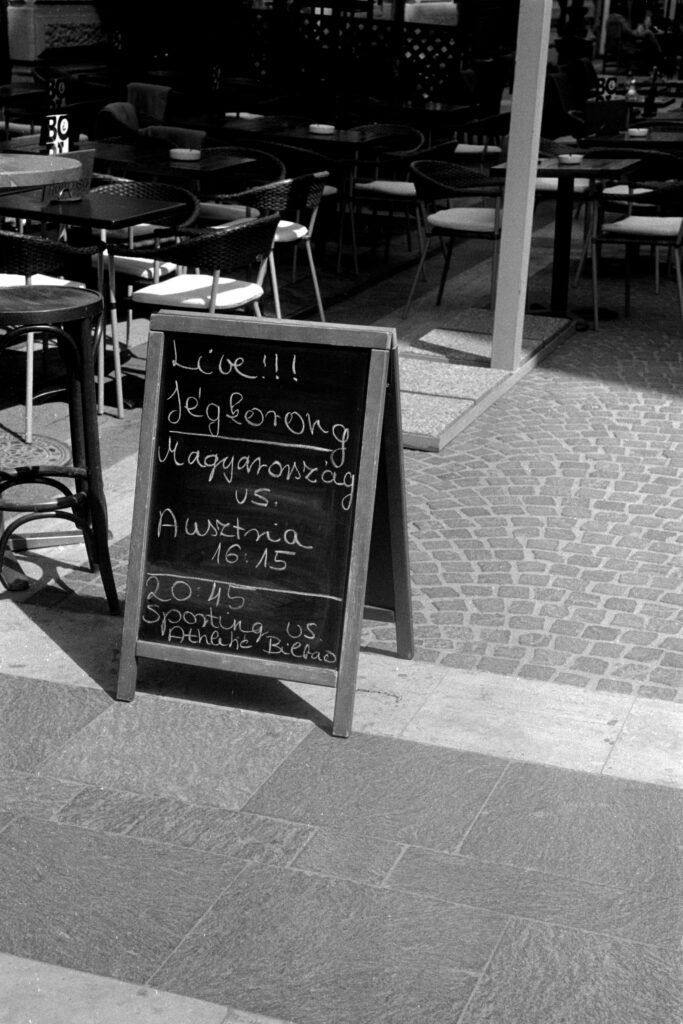 Live!!!
Jégkorong
Magyarország
vs.
Ausztria
16:15
20:45
Sporting vs.
Athletic Bilbao
BO
BO